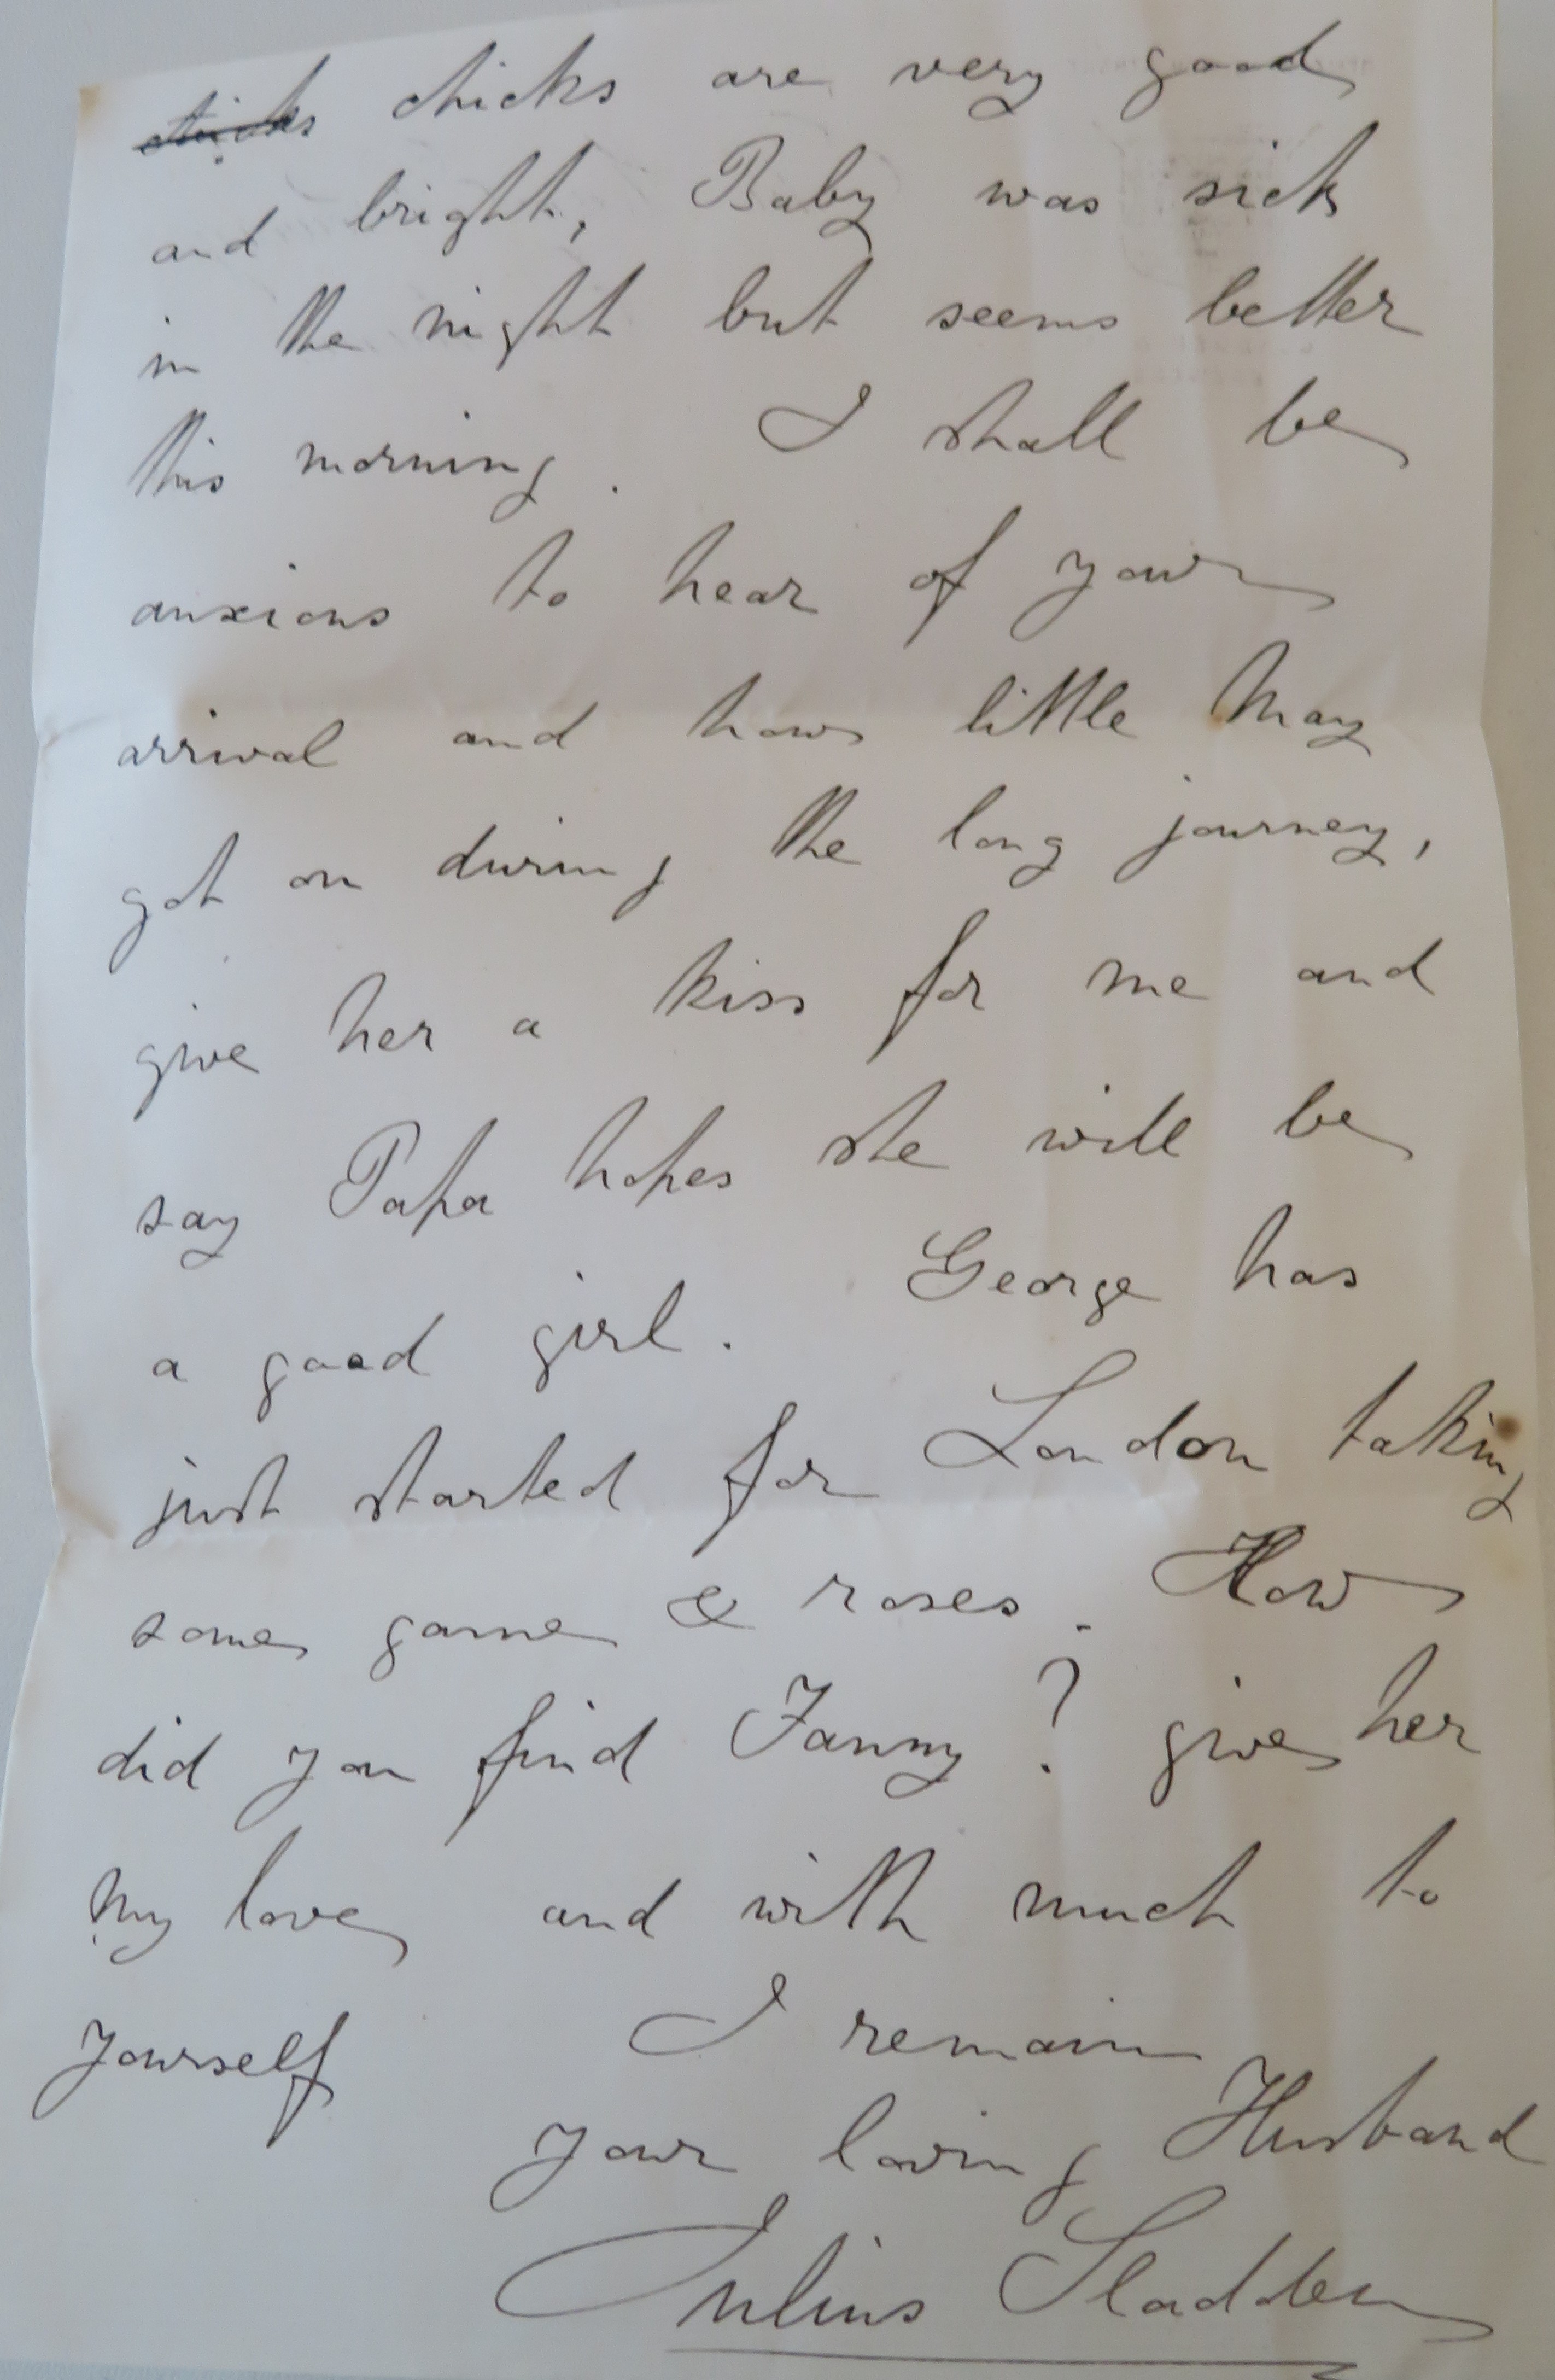 chicks chicks are very good
and bright, Baby was sick
in the night but seems better
this morning. I shall be
anxious to hear of your
arrival and how little May
got on during the long journey,
give her a kiss for me and
say Papa hopes she will be
a good girl. George has
just started for London taking
some game & roses. How
did you find Fanny? give her
my love and with much to
yourself I remain
your loving Husband
Julius Sladden